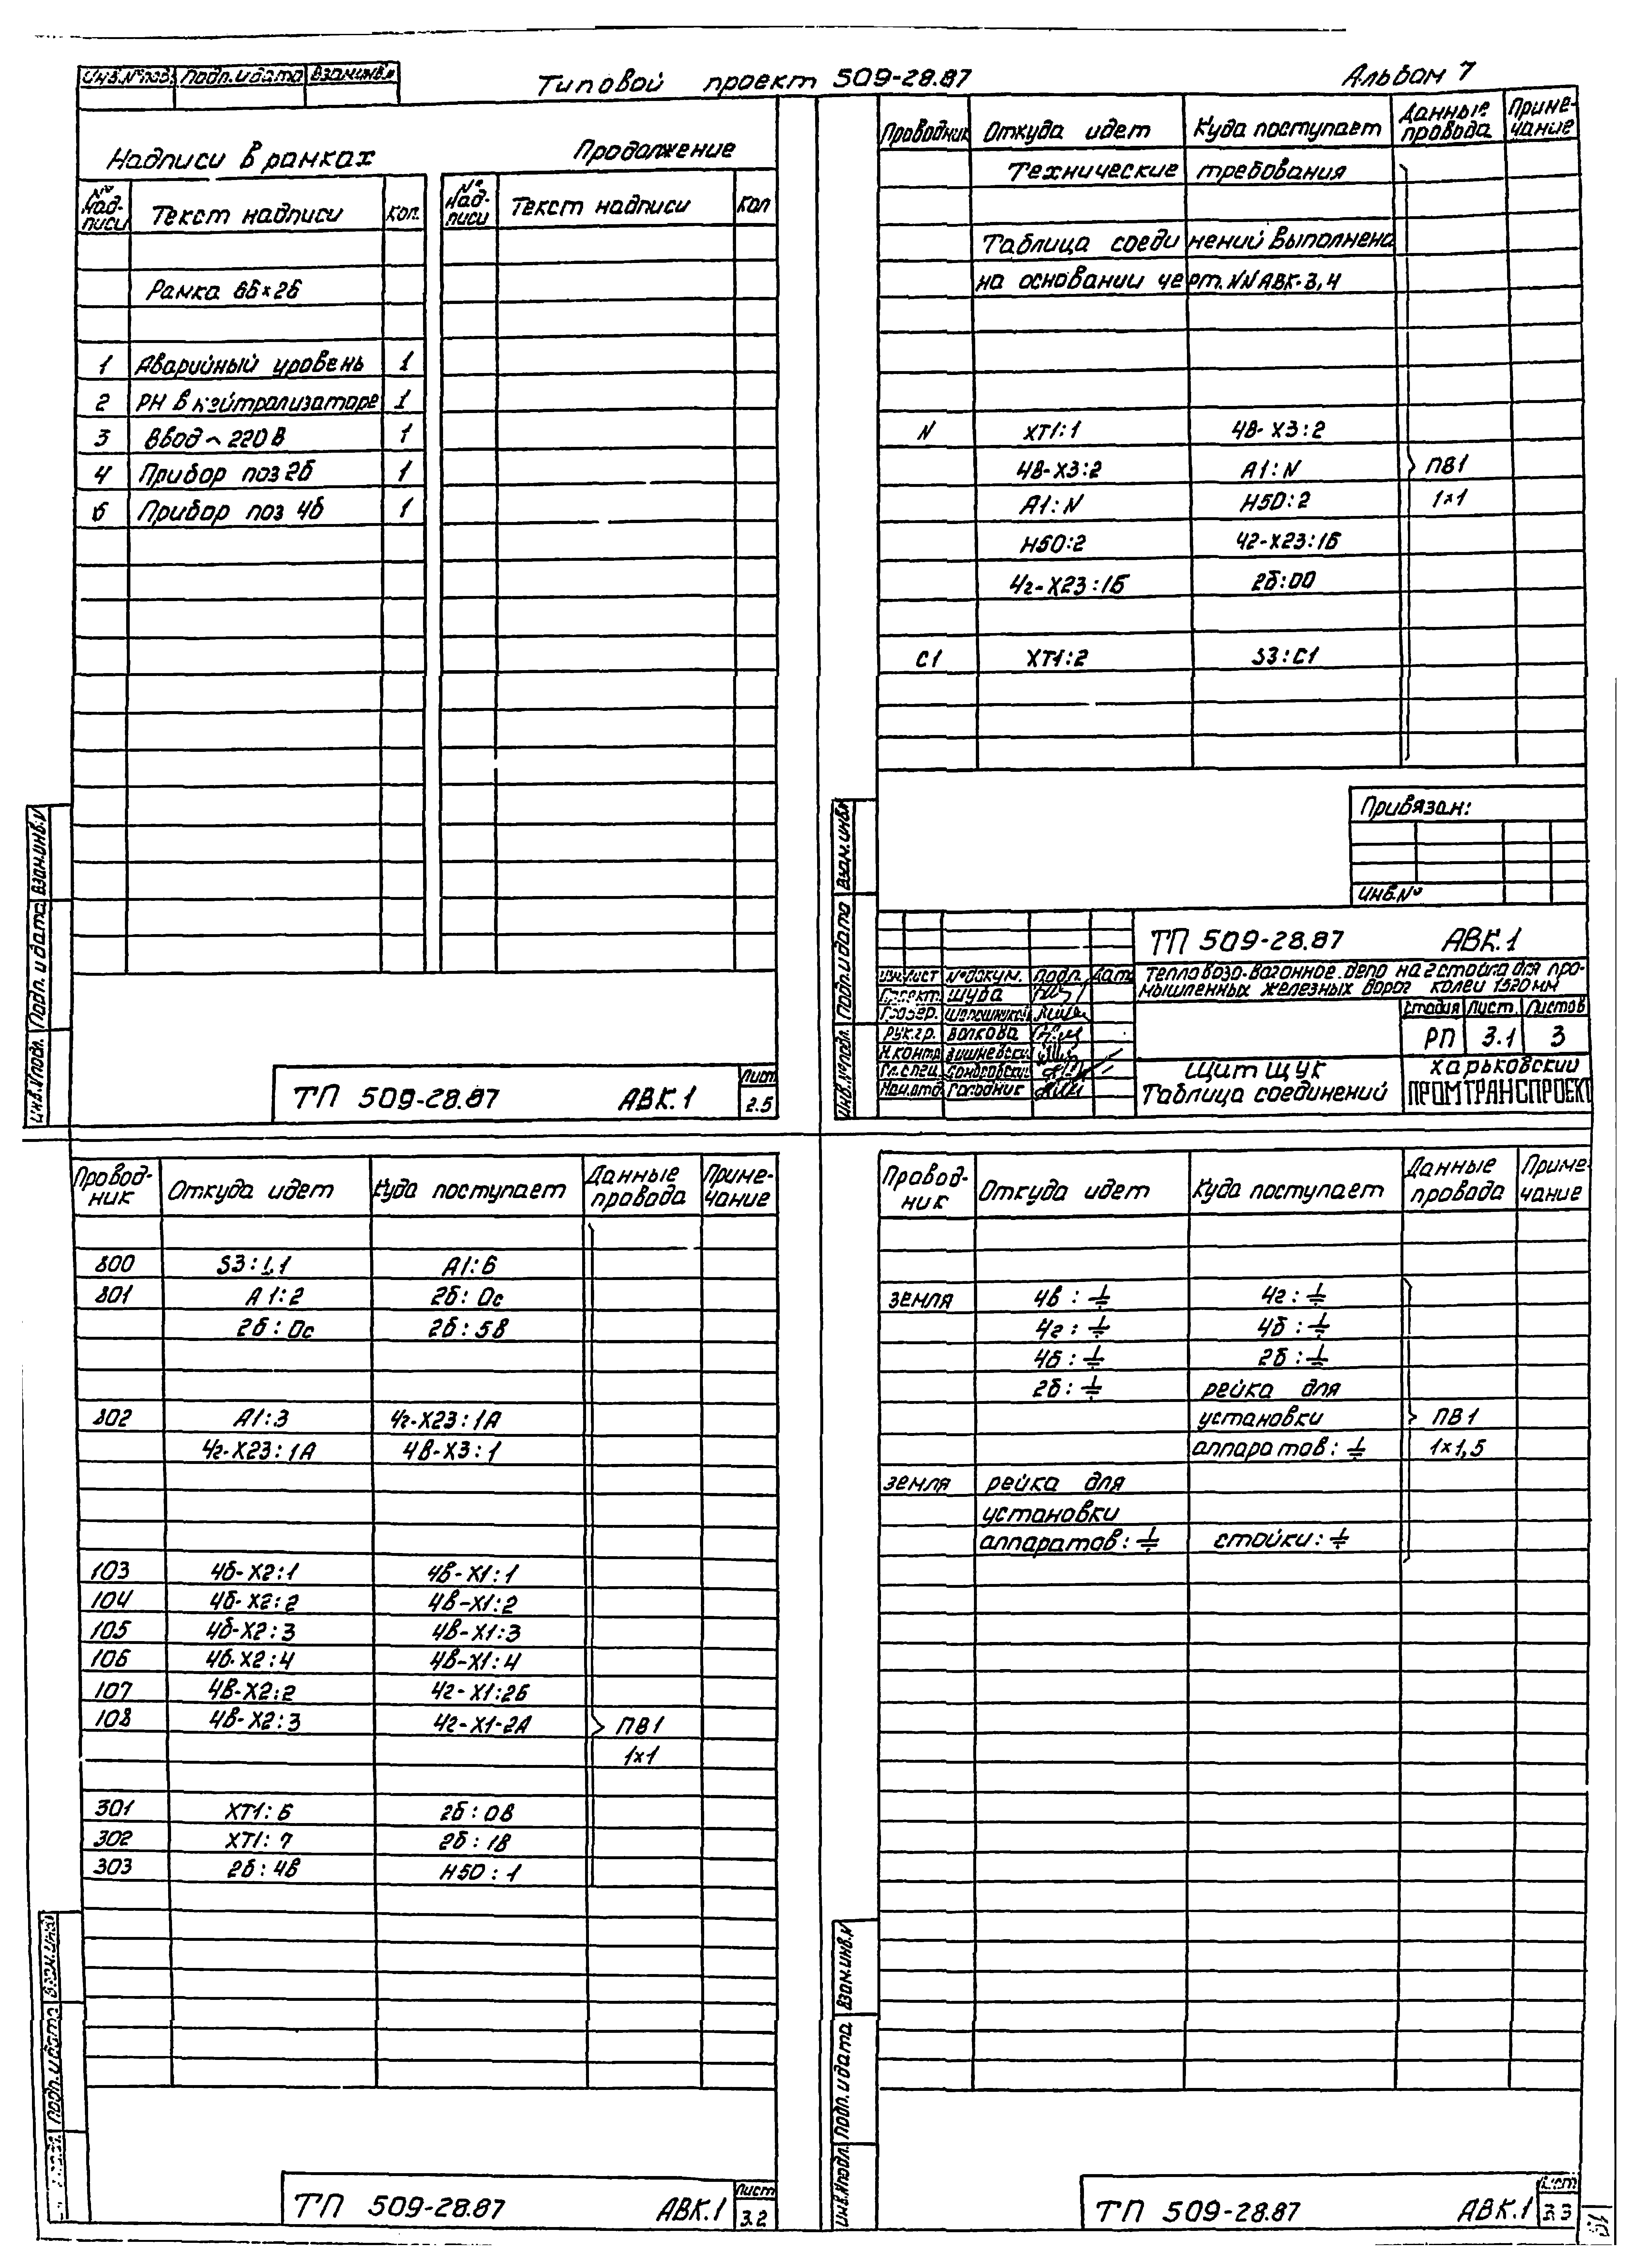 Инв.№ подл. Подп. и дата Взам.инв.№
Типовой проект 509-28.87
Альбом 7
Надписи в рамках
Продолжение
№ надписи Текст надписи Кол. № надписи Текст надписи Кол
Рамка 66×26
1 Аварийный уровень 1
2 РН в нэйтрализаторе 1
3 Ввод ~ 220 В 1
4 Прибор поз 2б 1
5 Прибор поз 4б 1
Инв.№подл. Подп. и дата Взам.инв.№
ТП 509-28.87 АВК.1 Лист 2.5
Проводник Откуда идет Куда поступает Данные провода Примечание
Технические требования
Таблица соединений выполнена
на основании черт. NN АВК-3,4
N ХТ1:1 4В-Х3:2
4В-Х3:2 А1:N ПВ1
А1:N Н50:2 1×1
Н50:2 4г-Х23:1Б
4г-Х23:1Б 2б:00
С1 ХТ1:2 S3:С1
Привязан:
Инв.№
Инв.№подл. Подп. и дата Взам.инв.№
ТП 509-28.87 АВК.1
Изм. Лист №докум. Подп. Дата
Тепловозо-вагонное депо на 2 стойла для про-
мышленных железных дорог колеи 1520мм
Проект. Шуба
Провер.
Рук.гр. Волкова
Н.контр. Вишневский
Гл.спец.
Нач.отд. Городник
Стадия Лист Листов
РП 3.1 3
Щит ЩУК
Таблица соединений
Харьковский
ПРОМТРАНСПРОЕКТ
Проводник Откуда идет Куда поступает Данные провода Примечание
800 S3:L1 А1:6
801 А1:2 2б:0с
2б:0с 2б:5В
802 А1:3 4г-Х23:1А
4г-Х23:1А 4В-Х3:1
103 4б-Х2:1 4В-Х1:1
104 4б-Х2:2 4В-Х1:2
105 4б-Х2:3 4В-Х1:3
106 4б-Х2:4 4В-Х1:4
107 4В-Х2:2 4г-Х1:2Б
108 4В-Х2:3 4г-Х1-2А ПВ1
1×1
301 ХТ1:6 2б:0В
302 ХТ1:7 2б:1В
303 2б:4В Н50:1
Подп. и дата Взам.инв.
ТП 509-28.87 АВК.1 Лист 3.2
Проводник Откуда идет Куда поступает Данные провода Примечание
земля 4в:⏚ 4г:⏚
4г:⏚ 4б:⏚
4б:⏚ 2б:⏚
2б:⏚ рейка для
установки ПВ1
аппаратов:⏚ 1×1,5
земля рейка для
установки
аппаратов:⏚ стойки:⏚
Инв.№подл. Подп. и дата Взам.инв.№
ТП 509-28.87 АВК.1 Лист 3.3